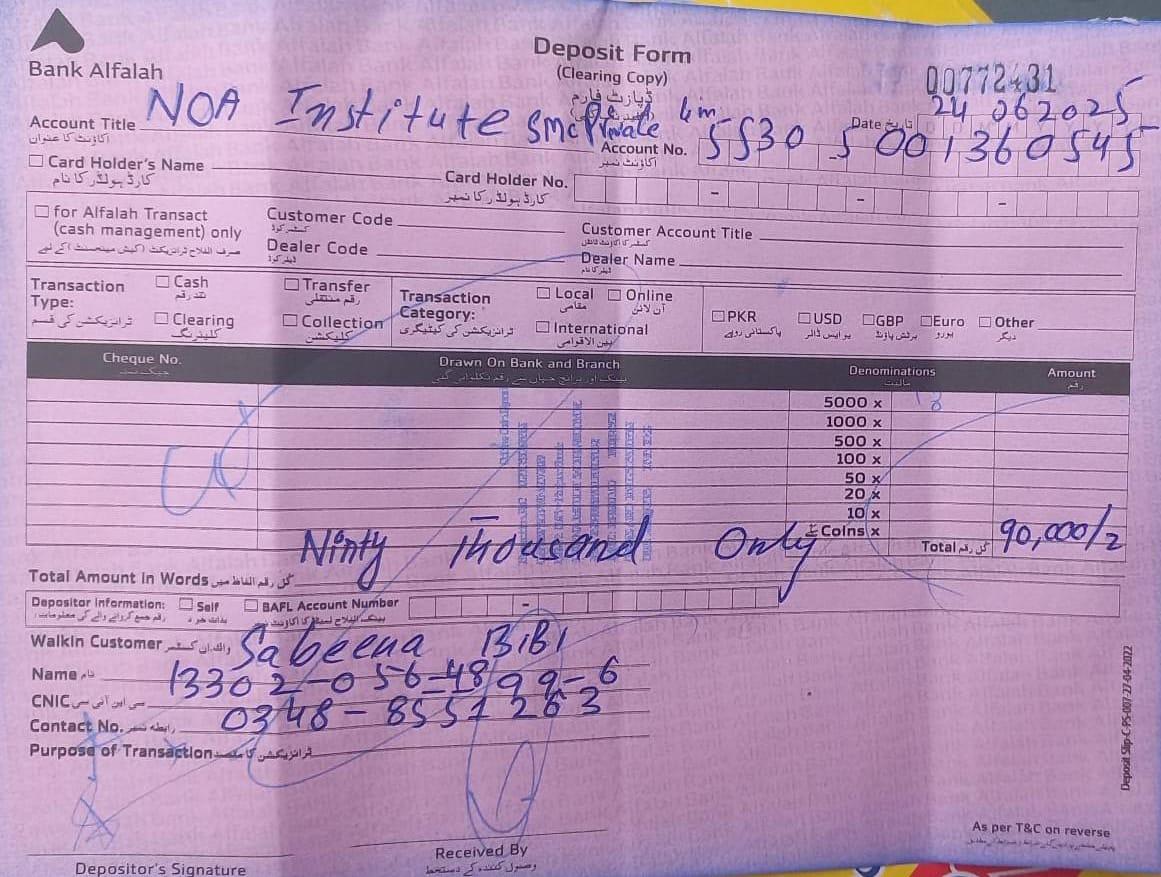 Bank Alfalah
Deposit Form
(Clearing Copy)
ڈپازٹ فارم
00772431
Date تاریخ 24 062025
Account Title NOA Institute SMC Private
اکاؤنٹ کا عنوان
Account No. 5530 5001360545
اکاؤنٹ نمبر
Card Holder's Name
کارڈ ہولڈر کا نام
Card Holder No.
کارڈ ہولڈر کا نمبر
for Alfalah Transact
(cash management) only
Customer Code
کسٹمر کوڈ
Customer Account Title
Dealer Code
ڈیلر کوڈ
Dealer Name
ڈیلر کا نام
Transaction Type:
ٹرانزیکشن کی قسم
Cash
نقد رقم
Transfer
رقم منتقلی
Clearing
کلیئرنگ
Collection
کلیکشن
Transaction Category:
ٹرانزیکشن کی کیٹیگری
Local
مقامی
Online
آن لائن
International
بین الاقوامی
PKR
پاکستانی روپے
USD
یو ایس ڈالر
GBP
برٹش پاؤنڈ
Euro
یورو
Other
دیگر
Cheque No.
چیک نمبر
Drawn On Bank and Branch
Denominations
مالیت
Amount
رقم
5000 x 18
1000 x
500 x
100 x
50 x
20 x
10 x
Coins x
Total کل رقم 90,000/2
Total Amount In Words کل رقم الفاظ میں Ninty Thousand Only
Depositor Information:
Self
بذات خود
BAFL Account Number
Walkin Customer
Name نام Sabeena BiBi
CNIC سی این آئی سی 13302-056-4899-6
Contact No. رابطہ نمبر 0348-8551263
Purpose of Transaction ٹرانزیکشن کا مقصد
Depositor's Signature
Received By
وصول کنندہ کے دستخط
As per T&C on reverse
Deposit Slip-C-PS-007-27-04-2022